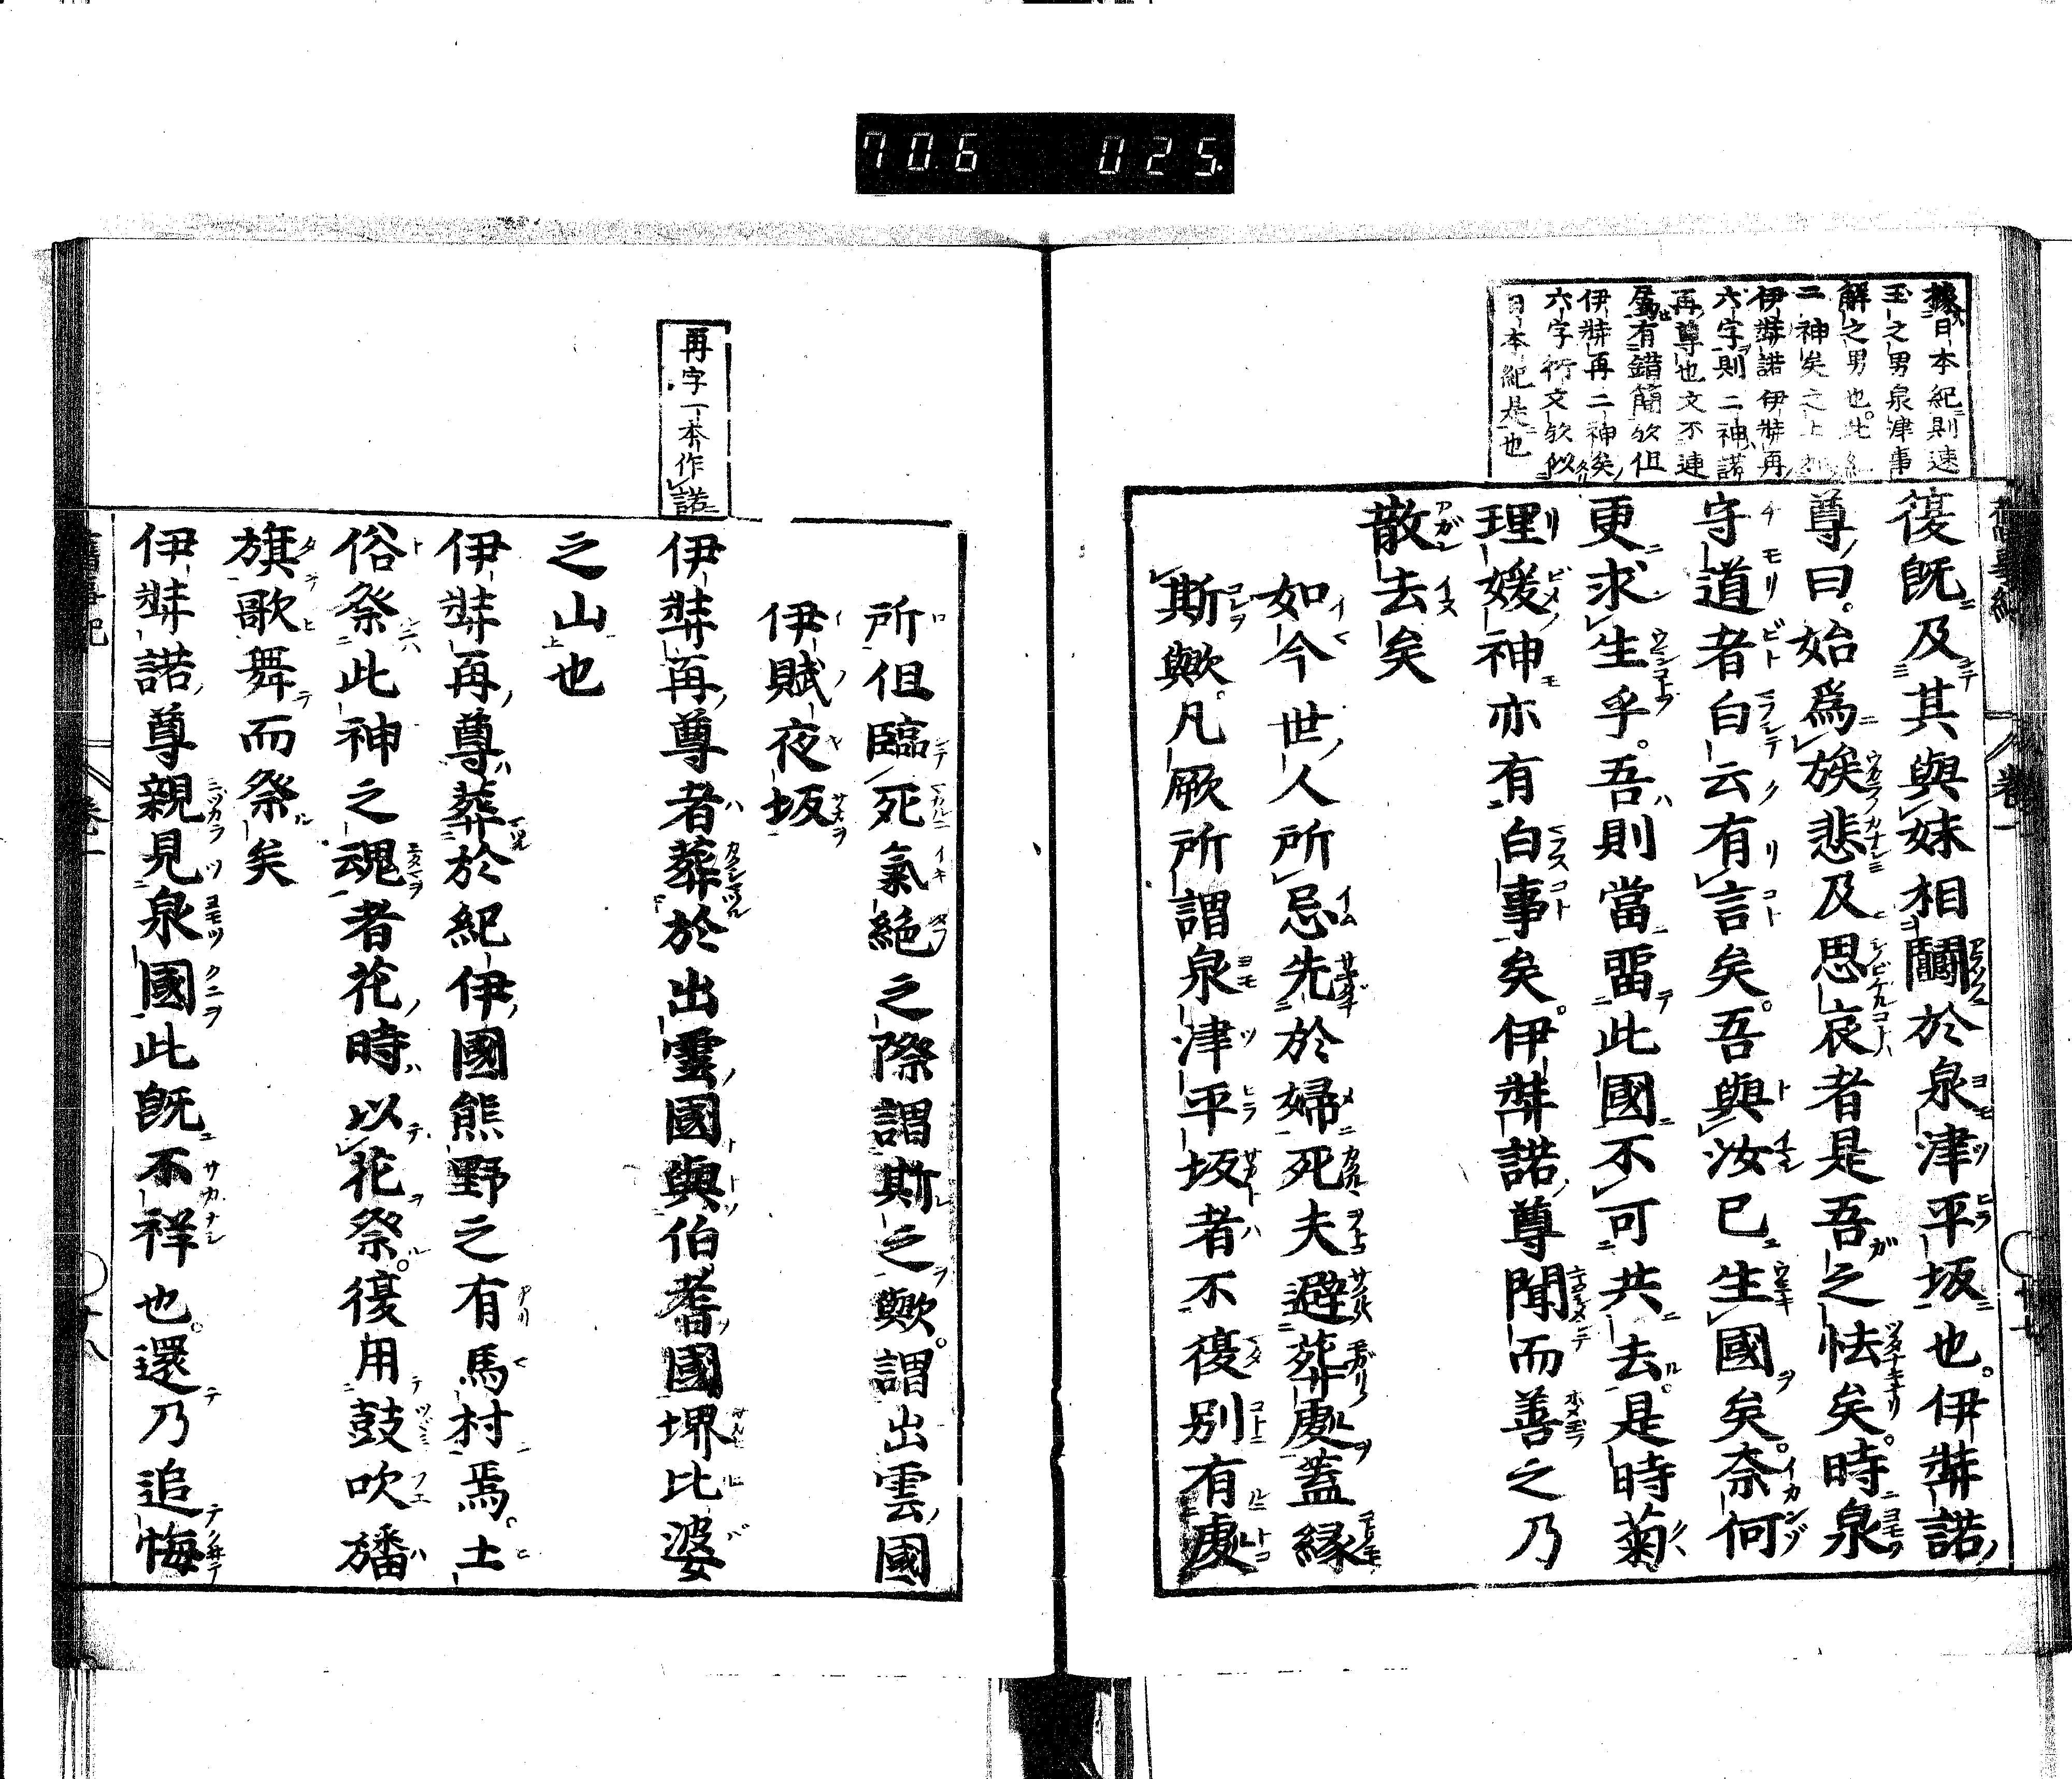 706 025
據日本紀則速
玉之男泉津事
解之男也此
二神矣之上
伊弉諾伊弉再
六字則二神諾
再尊也文不連
屬有錯簡欤但
伊弉再二神矣
六字衍文欤似
日本紀是也
復既及其與妹相鬬於泉津平坂也。伊弉諾
尊曰。始爲族悲及思哀者是吾之怯矣。時泉
守道者白云有言矣。吾與汝已生國矣。奈何
更求生乎。吾則當畱此國不可共去。是時菊
理媛神亦有白事矣。伊弉諾尊聞而善之乃
散去矣
如今世人所忌先於婦死夫避葬處蓋緣
斯歟。凡厥所謂泉津平坂者不復別有處
再字一本作諾
所但臨死氣絕之際謂斯之歟。謂出雲國
伊賦夜坂
伊弉再尊者葬於出雲國與伯耆國堺比婆
之山也
伊弉再尊葬於紀伊國熊野之有馬村焉。土
俗祭此神之魂者花時以花祭。復用鼓吹幡
旗歌舞而祭矣
伊弉諾尊親見泉國此既不祥也。還乃追悔